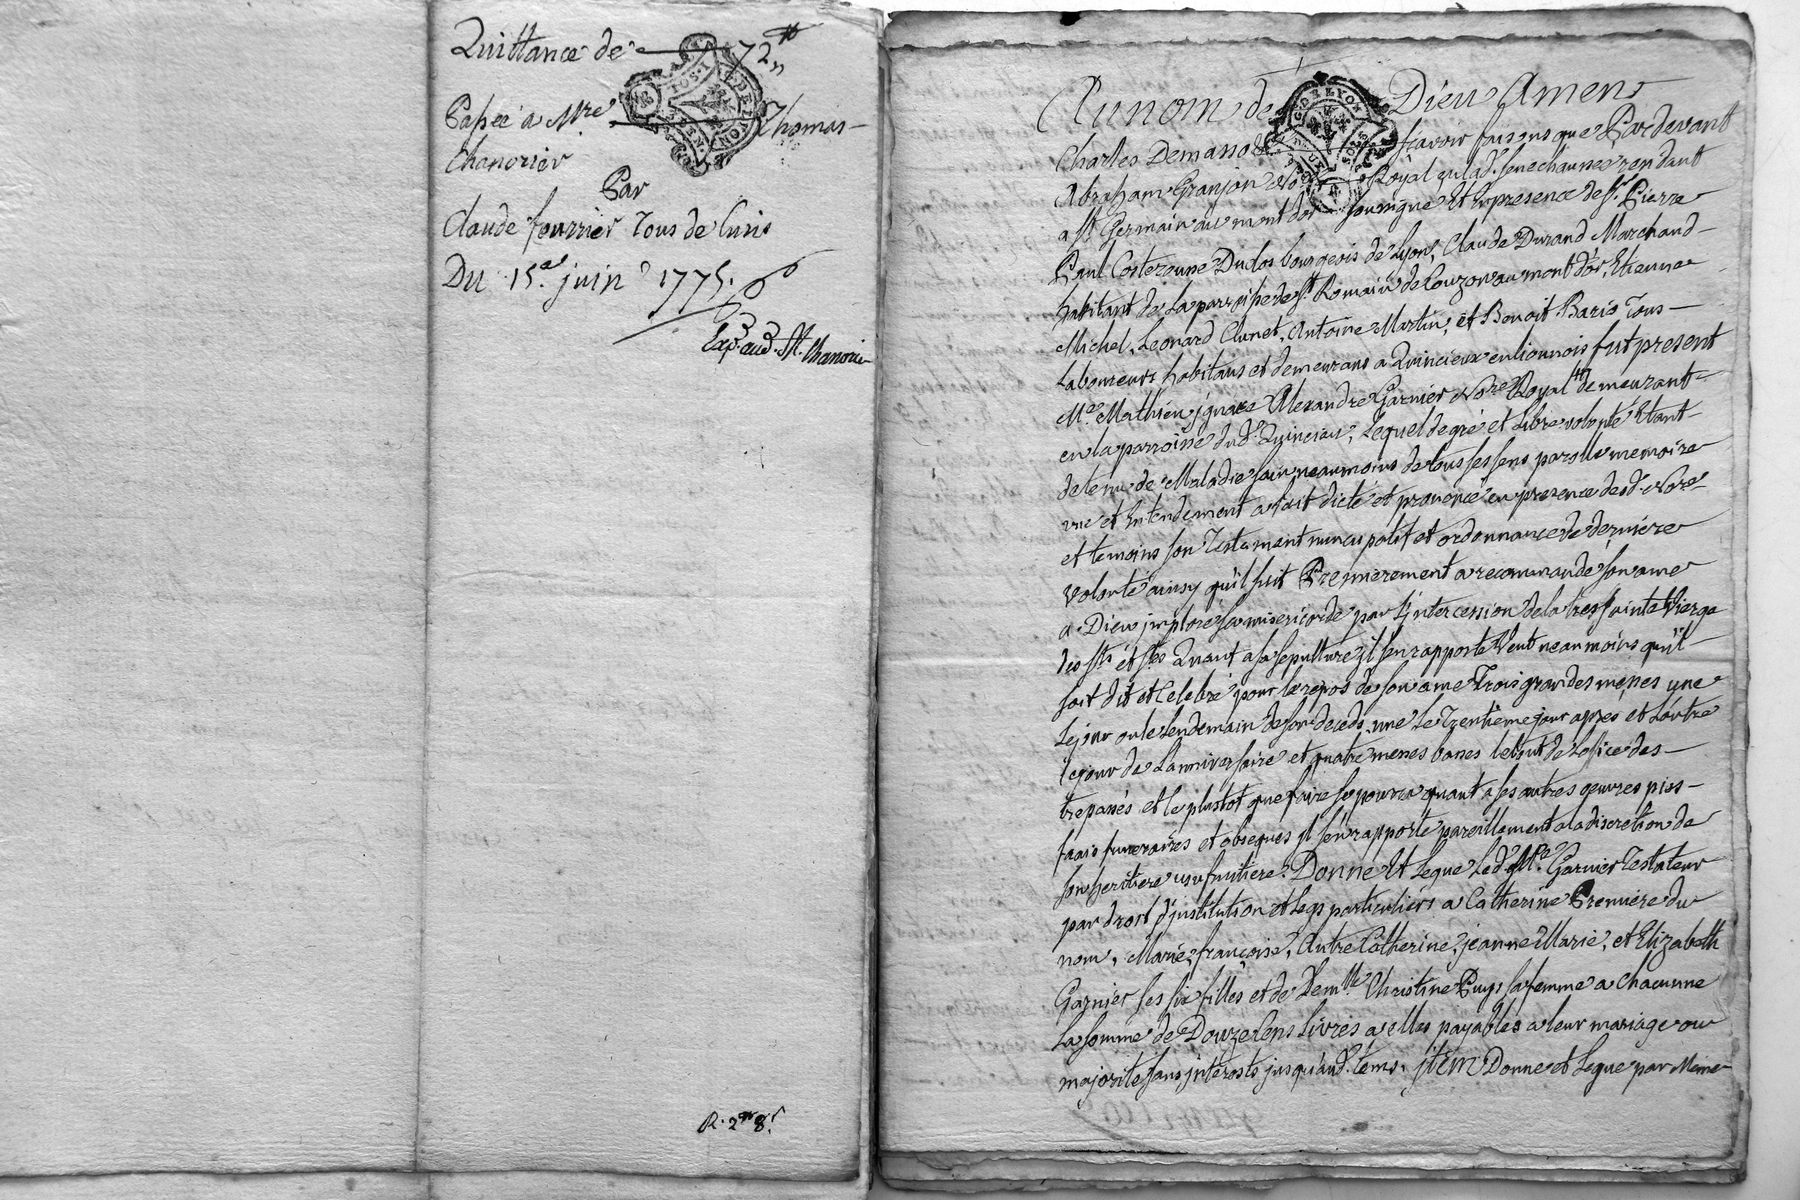 Quittance de 72 ₶
Passée a Mre Thomas
Chanorier
Par
Claude fourrier Tous de Curis
Du 15.e juin 1775.
Exp. aud. Sr. Chanorier
R. 2 8s
Au nom de Dieu Amen
Charles Demasso sçavoir faisons que Pardevant
Abraham Granjon Nore Royal en lad. senechaussee rendant
a St Germain au mont dor soussigné Et en presence de Sr. Pierre
Paul Costezoune Duclos bourgeois de Lyon, Claude Durand Marchand
habitant de la parroisse de St Romain de Couzon au mont d'or, Etienne
Michel, Leonard Clunet, Antoine Martin, et Benoit Baris Tous
Laboureurs habitans et demeurans a Quincieux en lionnois fut present
Me Mathieu jgnace Alexandre Garnier Nore Royal demeurant
en la parroisse dud. Quincieux, Lequel de gré et Libre volonté Etant
detenu de Maladie sain neanmoins de tous ses sens parolle memoire
vue et Entendement a fait dicté et prononcé en presence desd. Nore
et temoins son Testament nuncupatif et ordonnance de derniere
volonté ainsy qu'il suit Premierement a recommandé son ame
a Dieu jmploré sa misericorde par L'jntercession de la tres sainte Vierge
des Sts et Stes Quant a sa sepulture jl s'en rapporte Veut neanmoins qu'il
soit dit et Celebré pour le repos de son ame Trois grandes messes une
Le jour ou le lendemain de son deceds, une Le Trentieme jour apres et L'autre
le jour de L'anniversaire et quatre messes basses le tout de L'ofice des
trepassés et le plustot que faire se pourra quant a ses autres oeuvres pies
frais funeraires et obseques jl s'en rapporte pareillement a la discretion de
son heritiere usufruitiere. Donne Et Legue Led. Me. Garnier Testateur
par droit d'jnstitution et legs particuliers a Catherine Premiere du
nom, Marie, françoise, Autre Catherine, jeanne Marie, et Elizabeth
Garnier ses six filles et de Demlle Christine Puys sa femme a Chacunne
La somme de Douze Cens Livres a elles payables a leur mariage ou
majorité sans jnterests jusqu'aud. tems. jtem Donne et Legue par Meme